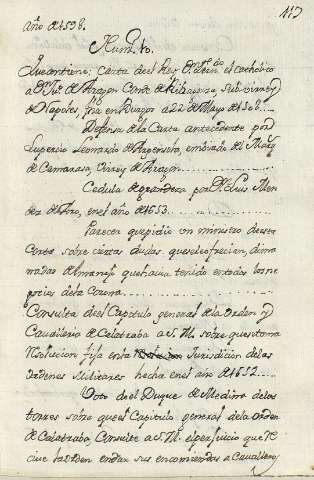 117
Año de 1598.
Num. 10.
Juventino; Carta del Rey D.n Fern.do el catholico
a D.n Ju.o de Aragon Conde de Ribagorza, su virrey
de Napoles, fha en Burgos a 22 de Mayo de 1508
Defensa de la Carta antecedente por
Lupercio Leonardo de Argensola, embiada al Marq.
de Camarasa, Virrey de Aragon
Cedula de grandeza por D.n Luis Men
dez de Aro, en el año de 1653
Parecer que pidio un ministro de esta
Corte sobre ciertas dudas que se le ofrecian, dima
nadas del manejo que havia tenido en todos los ne
gocios de la Corona
Consulta del Capitulo general de la Orden y
Cavalleria de Calatraba a S. M. sobre que se toma
resolucion fija en la Jurisdicion de las
Ordenes Militares hecha en el año de 1652
Voto del Duque de Medina de las
torres sobre que el Capitulo general de la Orden
de Calatraba, Consulte a S. M. el perjuicio que re
cive la Orden en dar sus encomiendas a Cavalleros